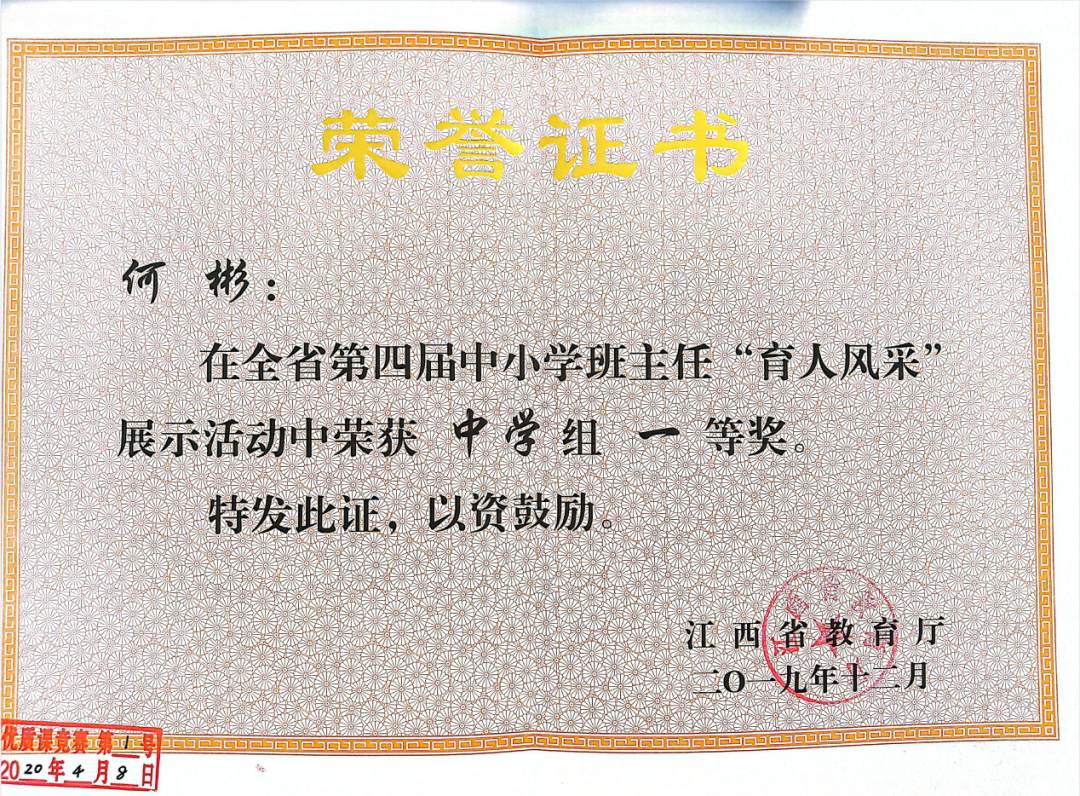 荣誉证书
何 彬：
在全省第四届中小学班主任“育人风采”
展示活动中荣获 中学 组 一 等奖。
特发此证，以资鼓励。
江西省教育厅
二〇一九年十二月
优质课竞赛 第 1 号
2020年4月8日